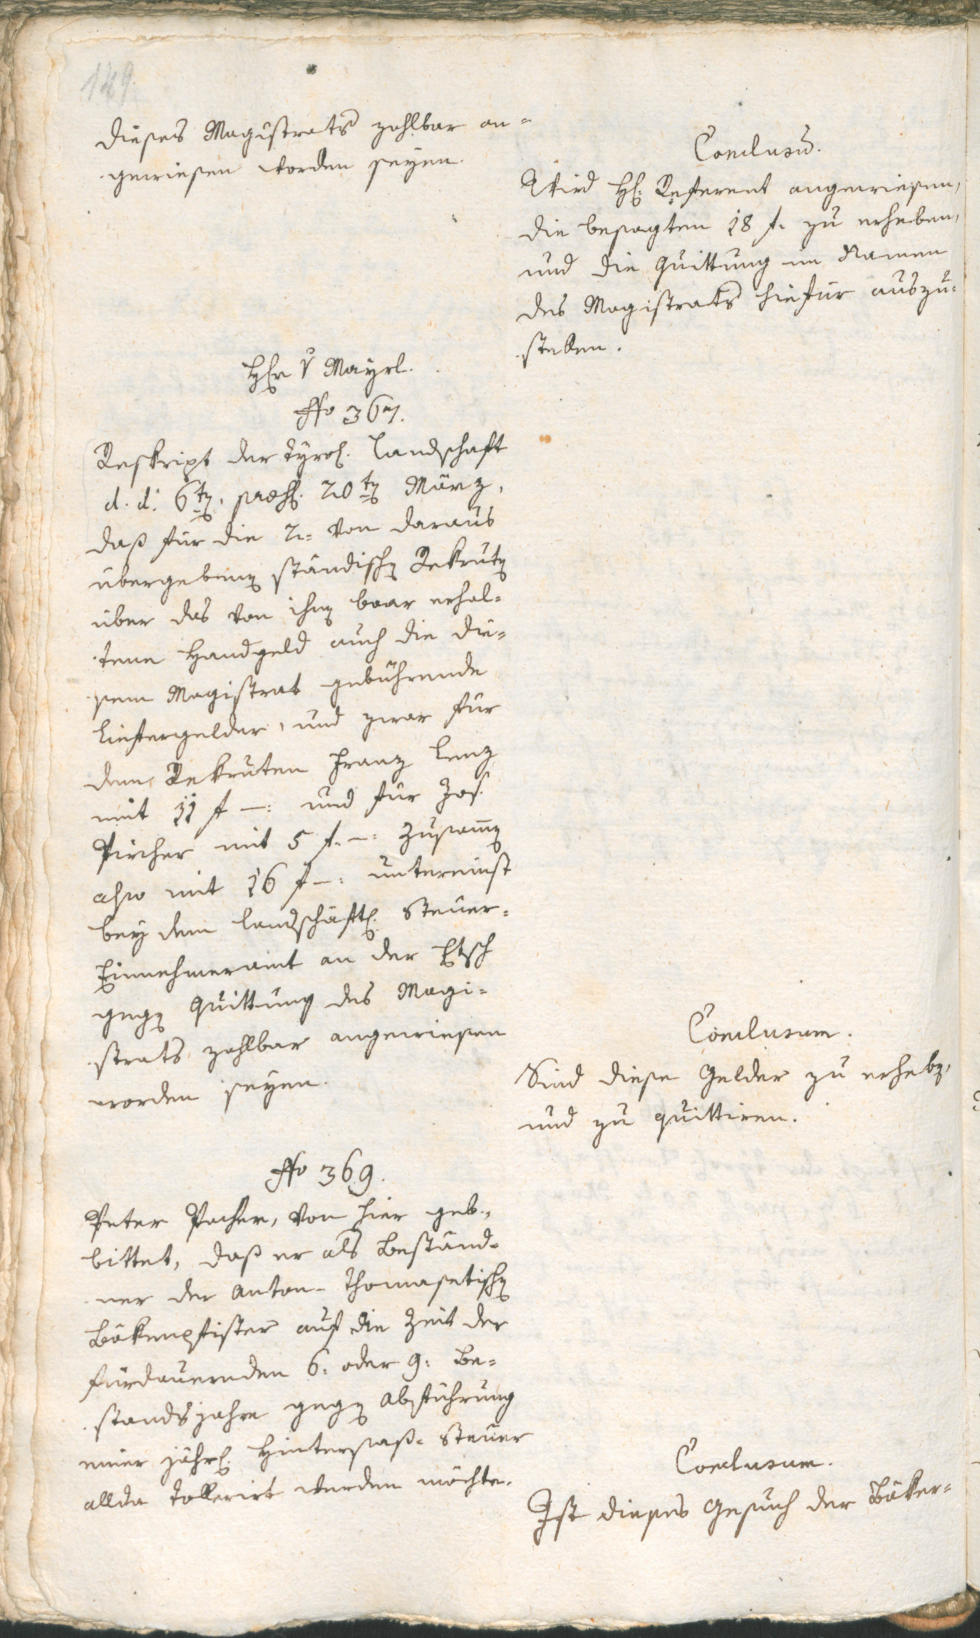 149.
dieses Magistrats zahlbar an-
gewiesen worden seyen.
Conclusū.
Wird H. Referent angewiesen,
die besagten 18 f. zu erheben,
und die Quittung im Namen
des Magistrats hiefür auszu-
stellen.
v Mayrl.
No 367.
Reskript der Tyrol. Landschaft
d. d. 6ten, praes. 20ten März,
daß für die 2. von daraus
übergebenen ständischen Rekruten
über das von ihnen baar erhal-
tene Handgeld auch die die-
sem Magistrat gebührende
Liefergelder, und zwar für
dem Rekruten Franz Lenz
mit 11 f –: und für Jos.
Pircher mit 5 f. –: zusammen
also mit 16 f –: untereinst
bey dem landschäftl. Steuer-
Einnehmeramt an der Etsch
gegen Quittung des Magi-
strats zahlbar angewiesen
worden seyen.
Conclusum.
Sind diese Gelder zu erheben,
und zu quittiren.
No 369.
Peter Pacher, von hier geb.,
bittet, daß er als Beständ-
ner der Anton- Thomasetischen
Bäkenpfister auf die Zeit der
fürdauernden 6. oder 9. Be-
standsjahre gegen Abführung
einer jährl. Hintersaß- Steuer
allda tollerirt werden möchte.
Conclusum.
Ist dieses Gesuch der Bäker-